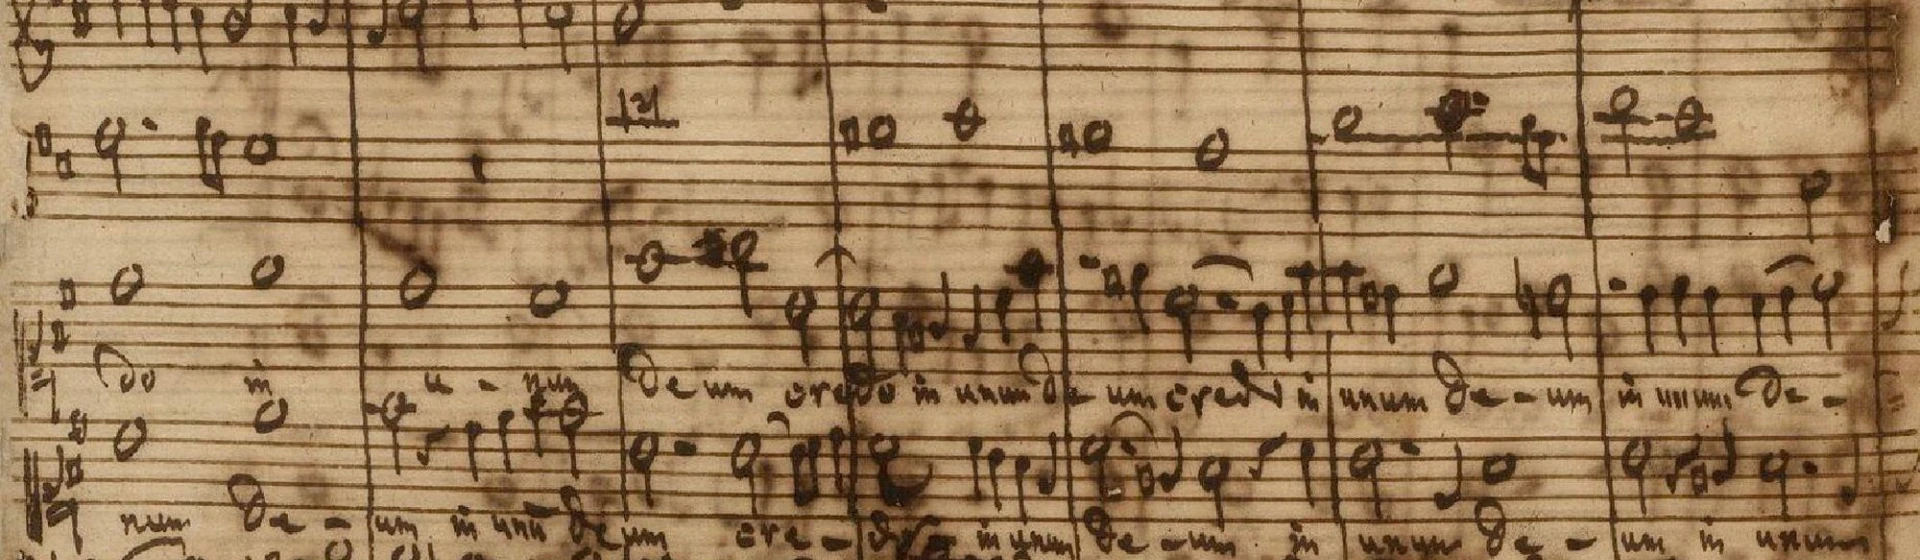 |2|
do in u - num De um credo in unum De um credo in unum De - um in unum De -
num De - um in unū De um cre - do in unum De - um in unum De - um in unum